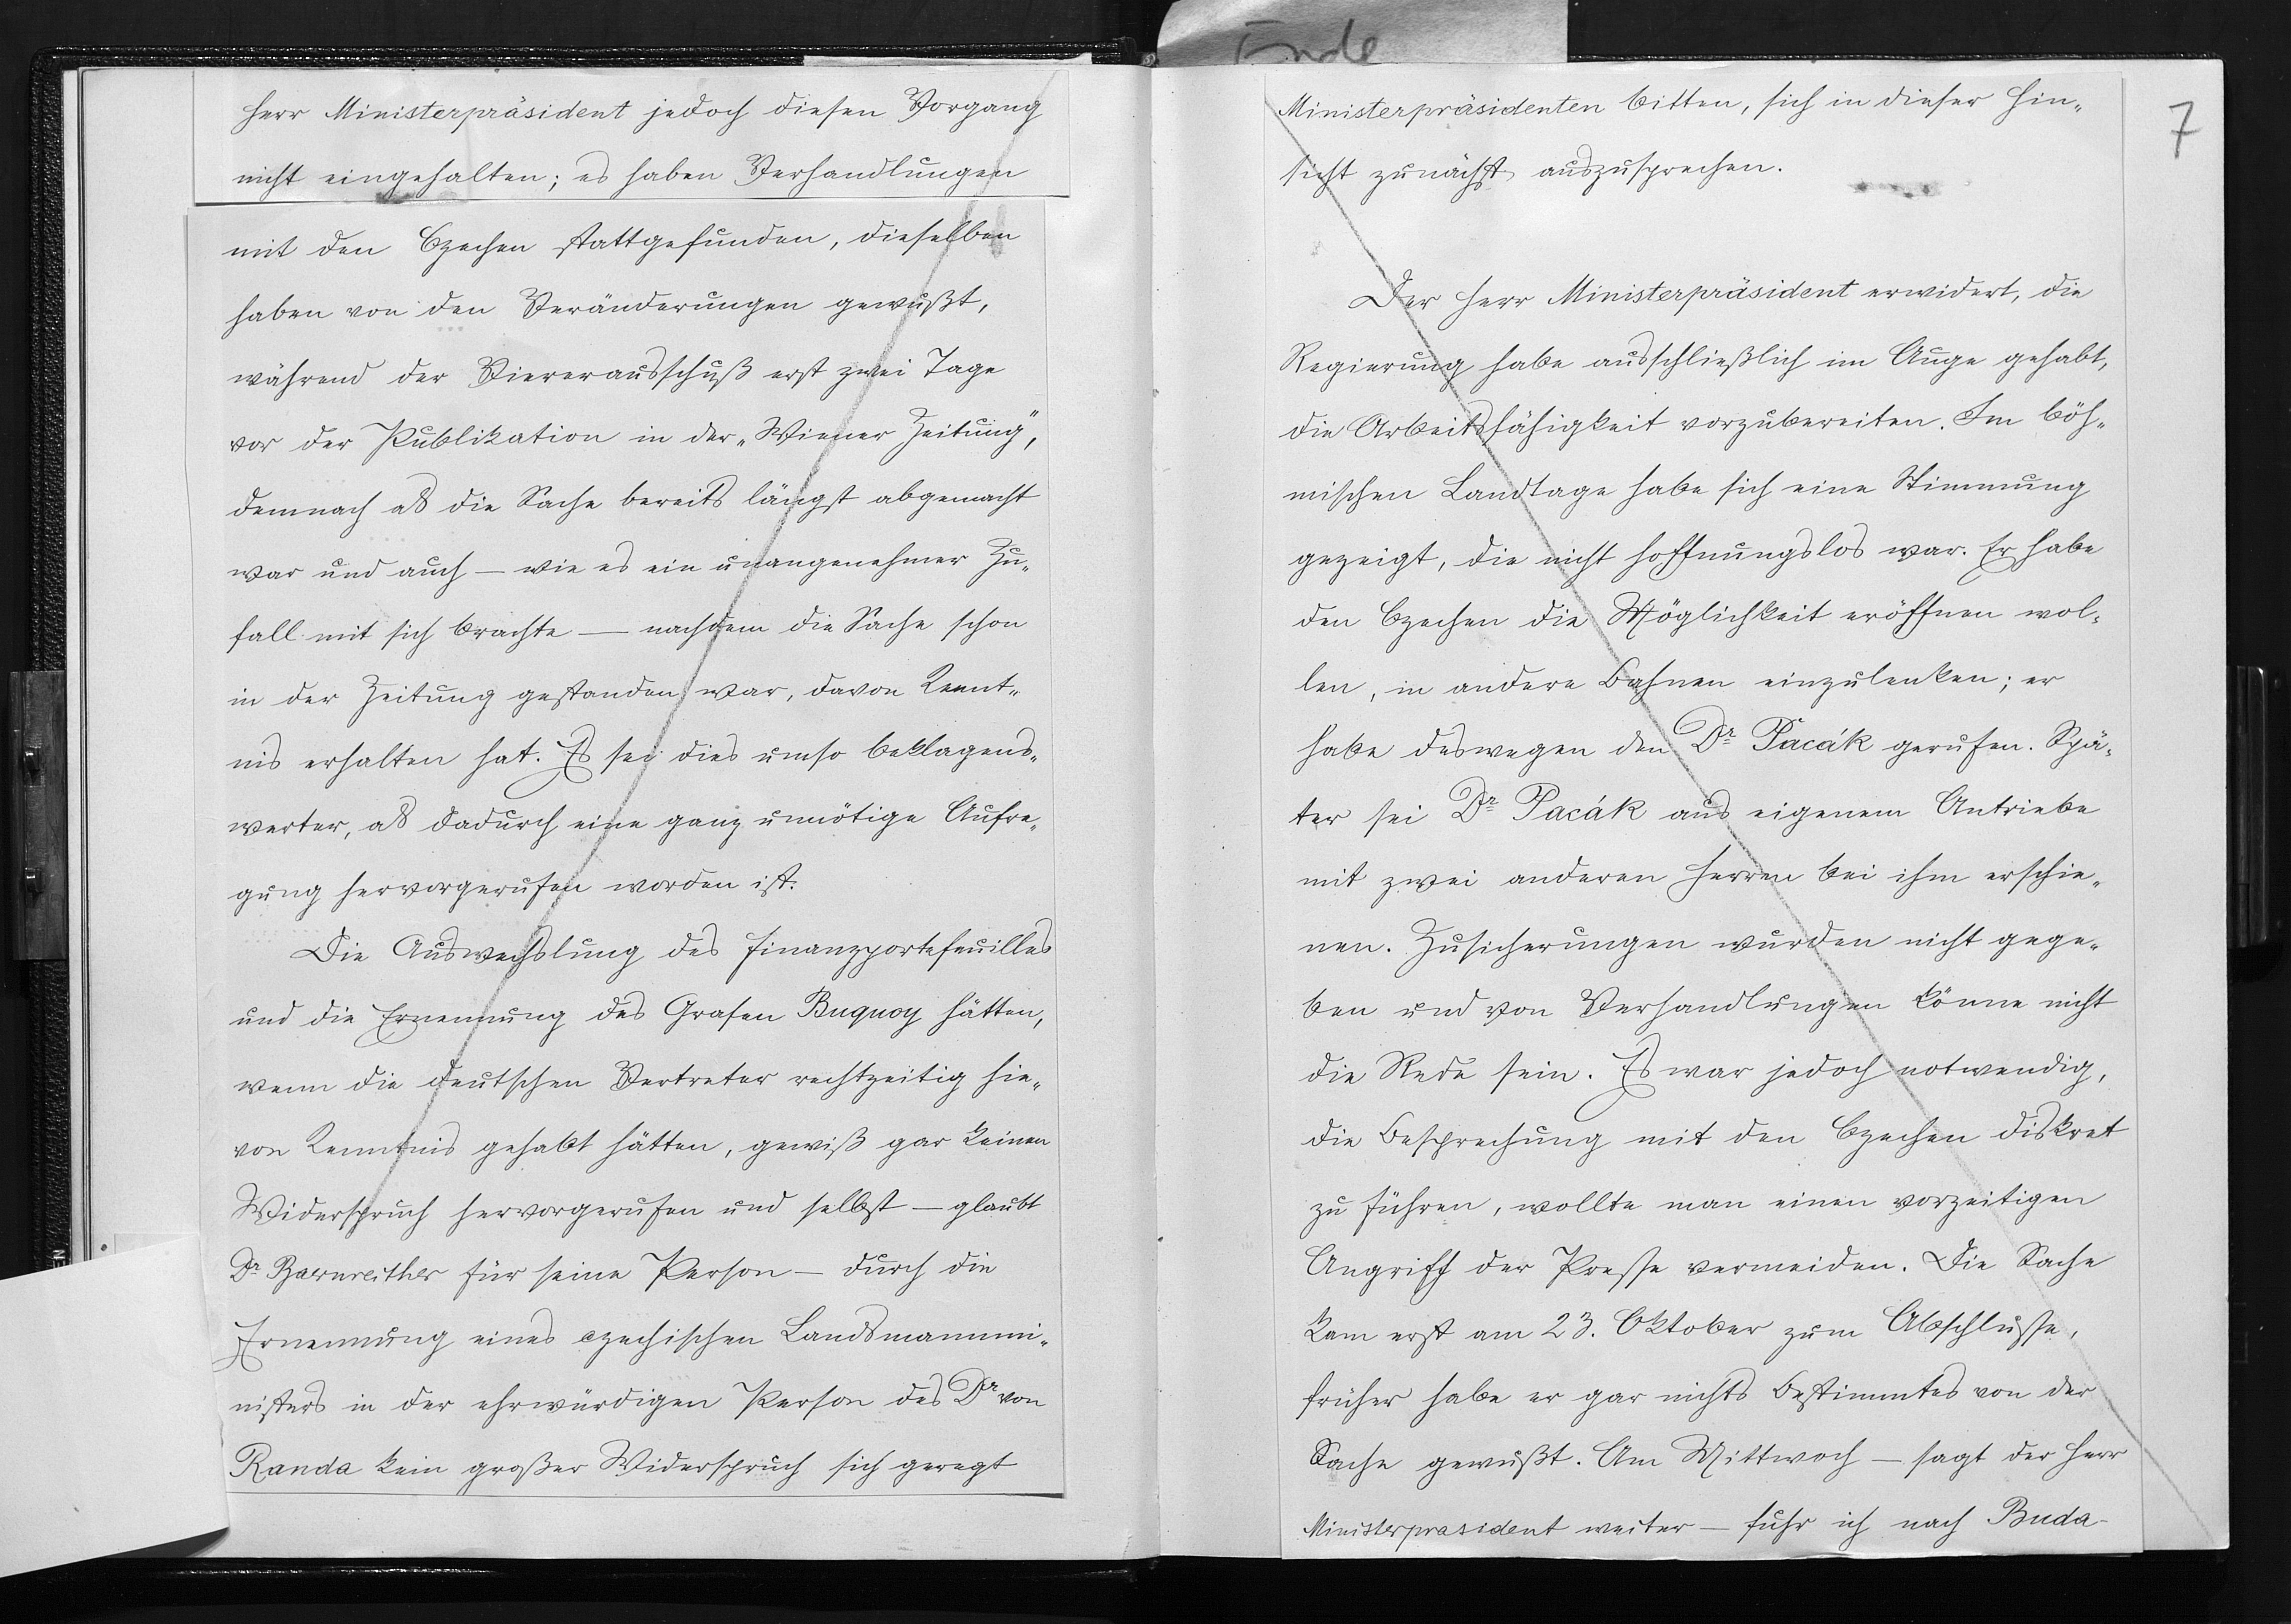 Herr Ministerpräsident jedoch diesen Vorgang
nicht eingehalten; es haben Verhandlungen
mit den Czechen stattgefunden, dieselben
haben von den Veränderungen gewußt,
während der Viererausschuß erst zwei Tage
vor der Publikation in der „Wiener Zeitung",
demnach als die Sache bereits längst abgemacht
war und auch — wie es ein unangenehmer Zu-
fall mit sich brachte — nachdem die Sache schon
in der Zeitung gestanden war, davon Kennt-
nis erhalten hat. Es sei dies umso beklagens-
werter, als dadurch eine ganz unnötige Aufre-
gung hervorgerufen worden ist.
Die Auswechslung des Finanzportefeuilles
und die Ernennung des Grafen Buquoy hätten,
wenn die deutschen Vertreter rechtzeitig hie-
von Kenntnis gehabt hätten, gewiß gar keinen
Widerspruch hervorgerufen und selbst — glaubt
Dr Baernreither für seine Person — durch die
Ernennung eines czechischen Landsmannmi-
nisters in der ehrwürdigen Person des Dr von
Randa kein großer Widerspruch sich geregt
Ende
7
Ministerpräsidenten bitten, sich in dieser Hin-
sicht zunächst auszusprechen.
Der Herr Ministerpräsident erwidert, die
Regierung habe ausschließlich im Auge gehabt,
die Arbeitsfähigkeit vorzubereiten. Im böh-
mischen Landtage habe sich eine Stimmung
gezeigt, die nicht hoffnungslos war. Er habe
den Czechen die Möglichkeit eröffnen wol-
len, in andere Bahnen einzulenken; er
habe deswegen den Dr Pacák gerufen. Spä-
ter sei Dr Pacák aus eigenem Antriebe
mit zwei anderen Herren bei ihm erschie-
nen. Zusicherungen wurden nicht gege-
ben und von Verhandlungen könne nicht
die Rede sein. Es war jedoch notwendig,
die Besprechung mit den Czechen diskret
zu führen, wollte man einen vorzeitigen
Angriff der Presse vermeiden. Die Sache
kam erst am 23. Oktober zum Abschlusse,
früher habe er gar nichts Bestimmtes von der
Sache gewußt. Am Mittwoch — sagt der Herr
Ministerprasident weiter — fuhr ich nach Buda-